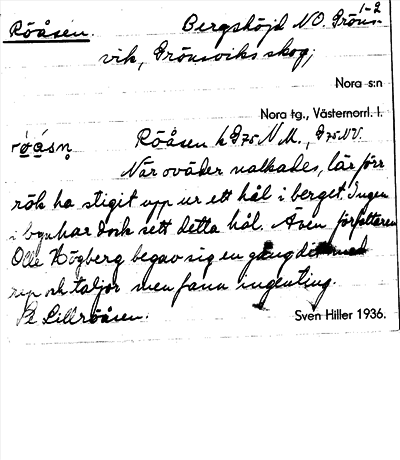 1-2
Röåsen. Bergshöjd NO. Gröns-
vik, Grönsviks skog;
Nora s:n
Nora tg., Västernorrl. l.
Röåsen k G75 N.M., G75 NV.
När oväder nalkades, lär förr
rök ha stigit upp ur ett hål i berget. Ingen
i byn har dock sett detta hål. Även författaren
Olle Högberg begav sig en gång dit med
rep och taljor men fann ingenting.
Lillröåsen.
Sven Hiller 1936.